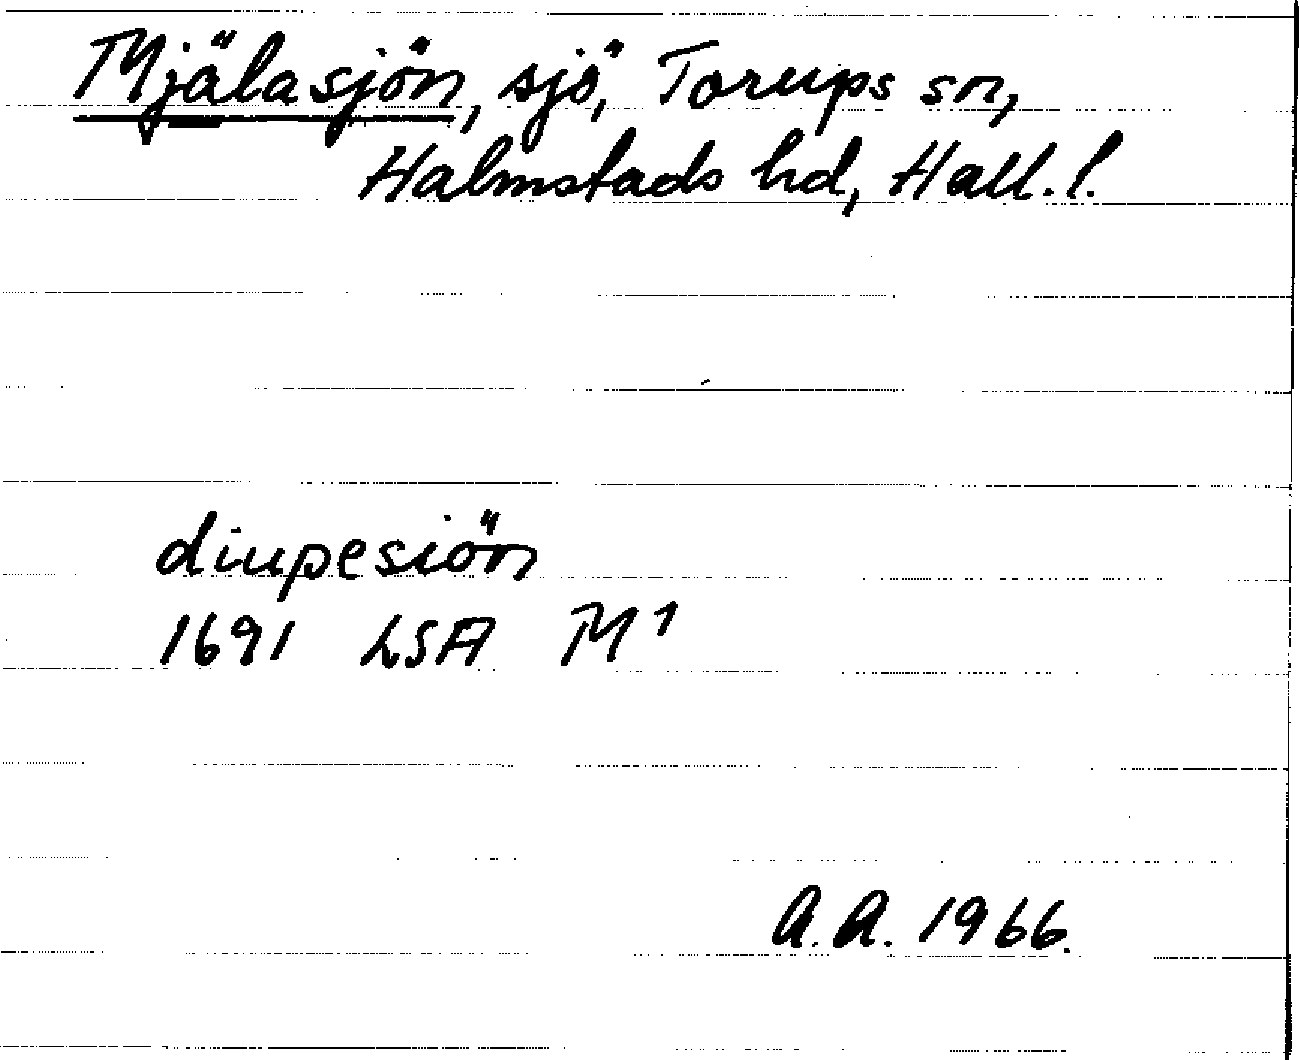 Mjälasjön, sjö, Torups sn,
Halmstads hd, Hall. l.
diupesiön
1691 LSA M1
A.A. 1966.